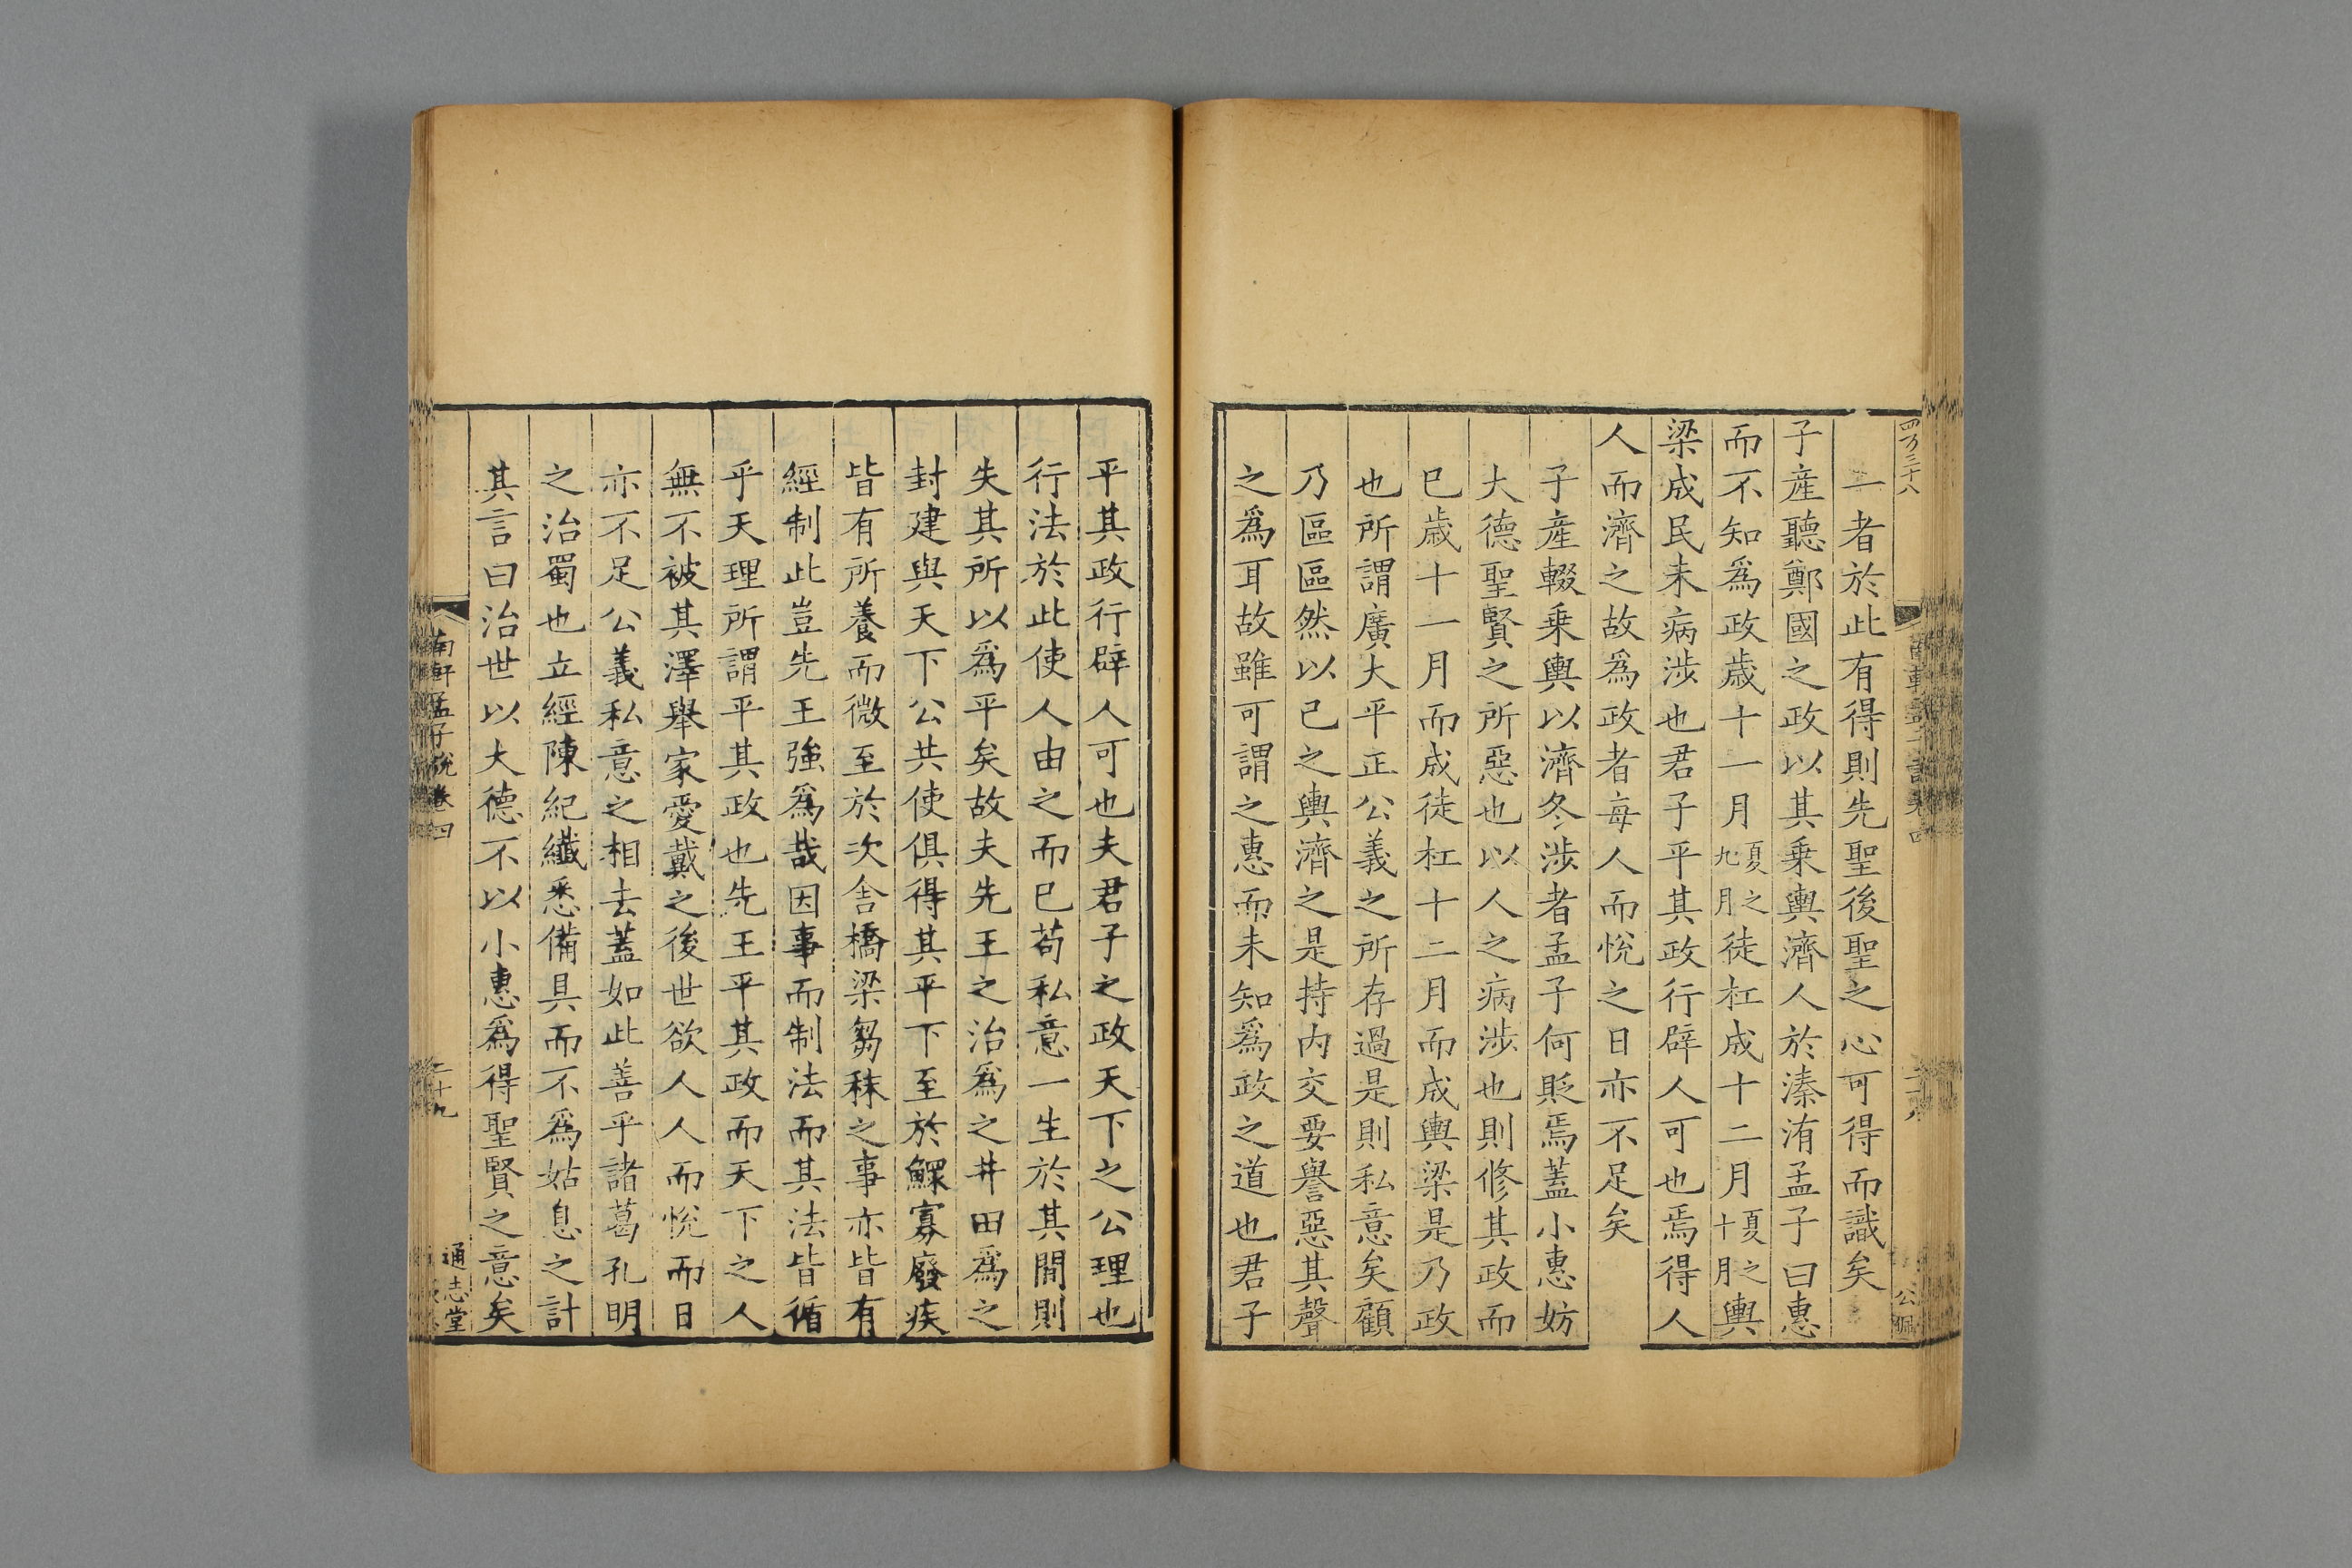 四万三十八
一者於此有得則先聖後聖之心可得而識矣
子產聽鄭國之政以其乗輿濟人於溱洧孟子曰惠
而不知爲政歲十一月夏之九月徒杠成十二月夏之十月輿
梁成民未病涉也君子平其政行辟人可也焉得人
人而濟之故爲政者每人而悅之日亦不足矣
子產輟乗輿以濟冬涉者孟子何貶焉蓋小惠妨
大德聖賢之所惡也以人之病涉也則修其政而
已歲十一月而成徒杠十二月而成輿梁是乃政
也所謂廣大平正公義之所存過是則私意矣顧
乃區區然以已之輿濟之是持內交要譽惡其聲
之爲耳故雖可謂之惠而未知爲政之道也君子
平其政行辟人可也夫君子之政天下之公理也
行法於此使人由之而已苟私意一生於其間則
失其所以爲平矣故夫先王之治爲之井田爲之
封建與天下公共使俱得其平下至於鰥寡廢疾
皆有所養而微至於次舍橋梁芻秣之事亦皆有
經制此豈先王強爲哉因事而制法而其法皆循
乎天理所謂平其政也先王平其政而天下之人
無不被其澤舉家愛戴之後世欲人人而悅而日
亦不足公義私意之相去蓋如此善乎諸葛孔明
之治蜀也立經陳紀纖悉備具而不爲姑息之計
其言曰治世以大德不以小惠爲得聖賢之意矣
南軒孟子說卷四
二十九
通志堂